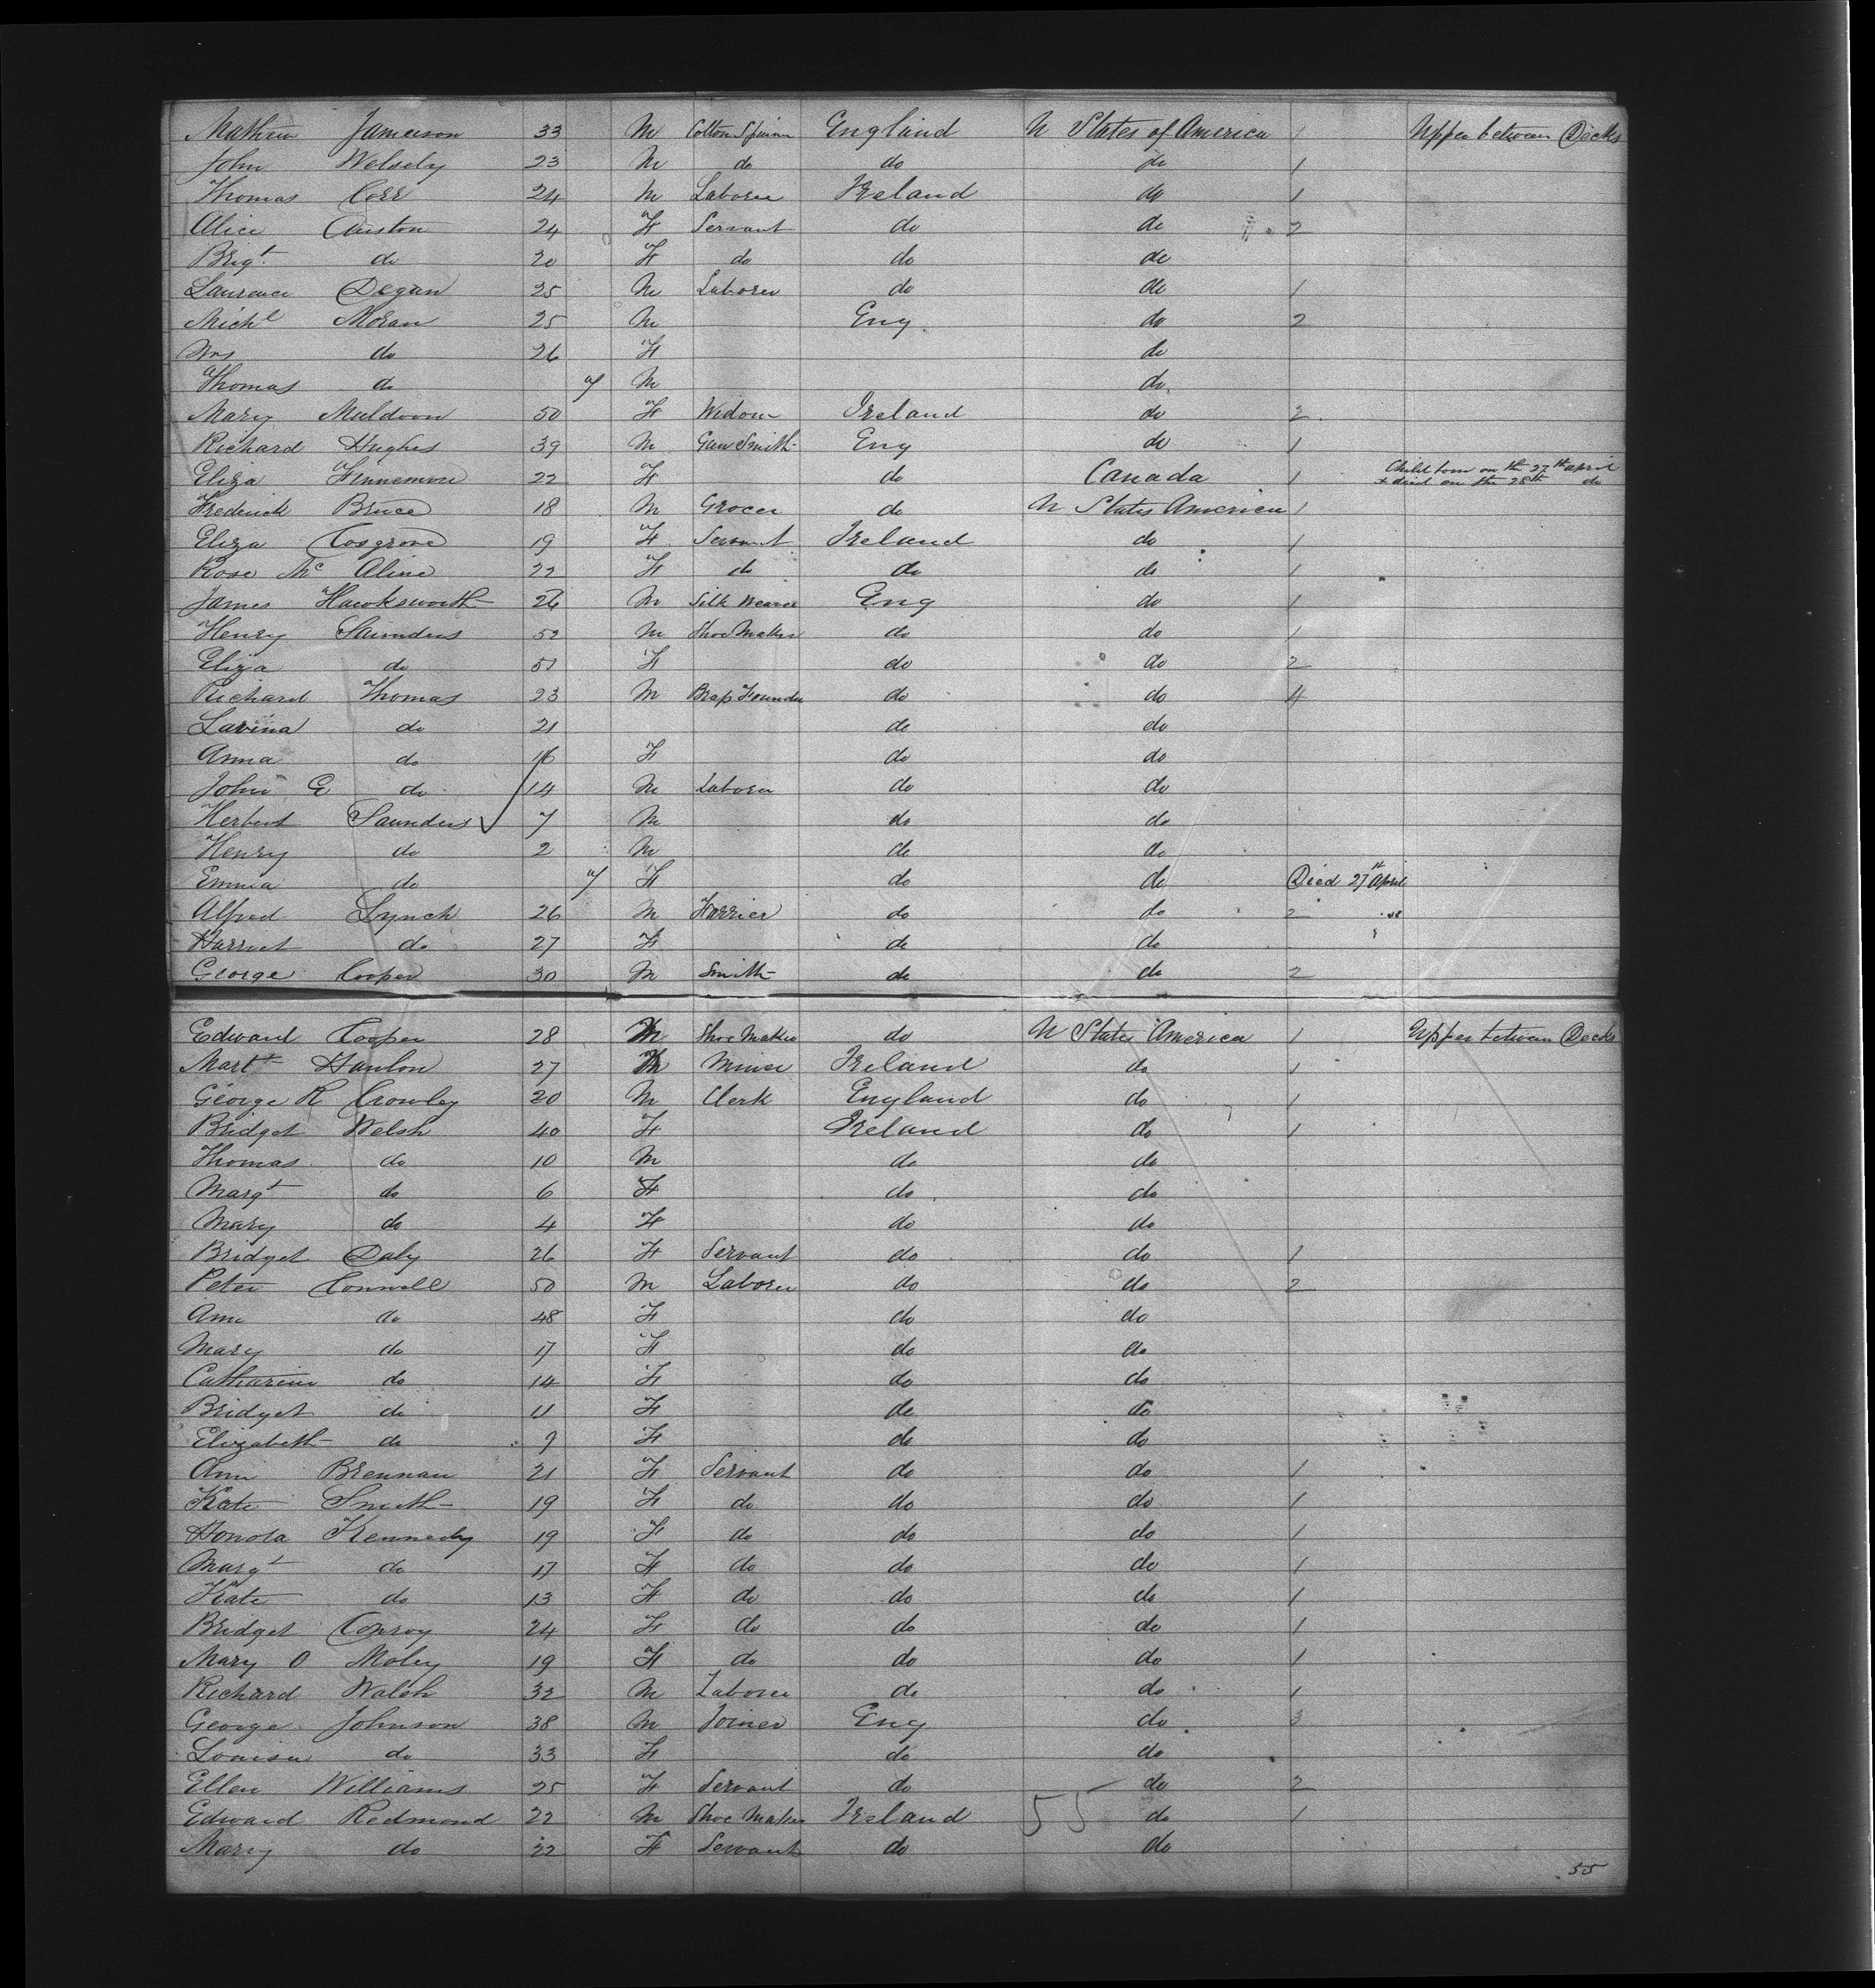 Mathew Jameison 33 M Cotton Spinner England U States of America 1 Upper between Decks
John Welsely 23 M do do do 1
Thomas Corr 24 M Laborer Ireland do 1
Alice Auston 24 F Servant do do 2
Brigt do 20 F do do do
Laurence Degan 25 M Laborer do do 1
Michl Moran 25 M Eng do 2
Mrs do 26 F do
Thomas do M do
Mary Muldoon 50 F Widow Ireland do 2
Richard Hughes 39 M Gun Smith Eng do 1
Eliza Finnemore 22 F do Canada 1 Child born on the 27th april & died on the 28th do
Frederick Bruce 18 M Grocer do U States America 1
Eliza Cosgrove 19 F Servant Ireland do 1
Rose Mc Aline 22 F do do do 1
James Hawksworth 26 M Silk Weaver Eng do 1
Henry Saunders 52 M Shoe Maker do do 1
Eliza do 51 F do do 2
Richard Thomas 23 M Brass Founder do do 4
Lavina do 21 do do
Anna do 16 F do do
John G do 14 M Laborer do do
Herbert Saunders 7 M do do
Henry do 2 M do do
Emma do F do do Died 27th April
Alfred Lynch 26 M Farrier do do 2
Harriet do 27 F do do
George Cooper 30 M Smith do do 2
Edward Cooper 28 M Shoe Maker do U States America 1 Upper between Decks
Martt Hanlon 27 M Miner Ireland do 1
George R Crowley 20 M Clerk England do 1
Bridget Welsh 40 F Ireland do 1
Thomas do 10 M do do
Margt do 6 F do do
Mary do 4 F do do
Bridget Daly 26 F Servant do do 1
Peter Connell 50 M Laborer do do 2
Ann do 48 F do do
Mary do 17 F do do
Catharine do 14 F do do
Bridget do 11 F do do
Elizabeth do 9 F do do
Ann Brennan 21 F Servant do do 1
Kate Smith 19 F do do do 1
Honora Kennedy 19 F do do do 1
Margt do 17 F do do do 1
Kate do 13 F do do do 1
Bridget Conroy 24 F do do do 1
Mary O Moley 19 F do do do 1
Richard Walsh 32 M Laborer do do 1
George Johnson 38 M Joiner Eng do 3
Louisa do 33 F do do
Ellen Williams 25 F Servant do do 2
Edward Redmond 22 M Shoe Maker Ireland 55 do 1
Mary do 22 F Servant do do
55